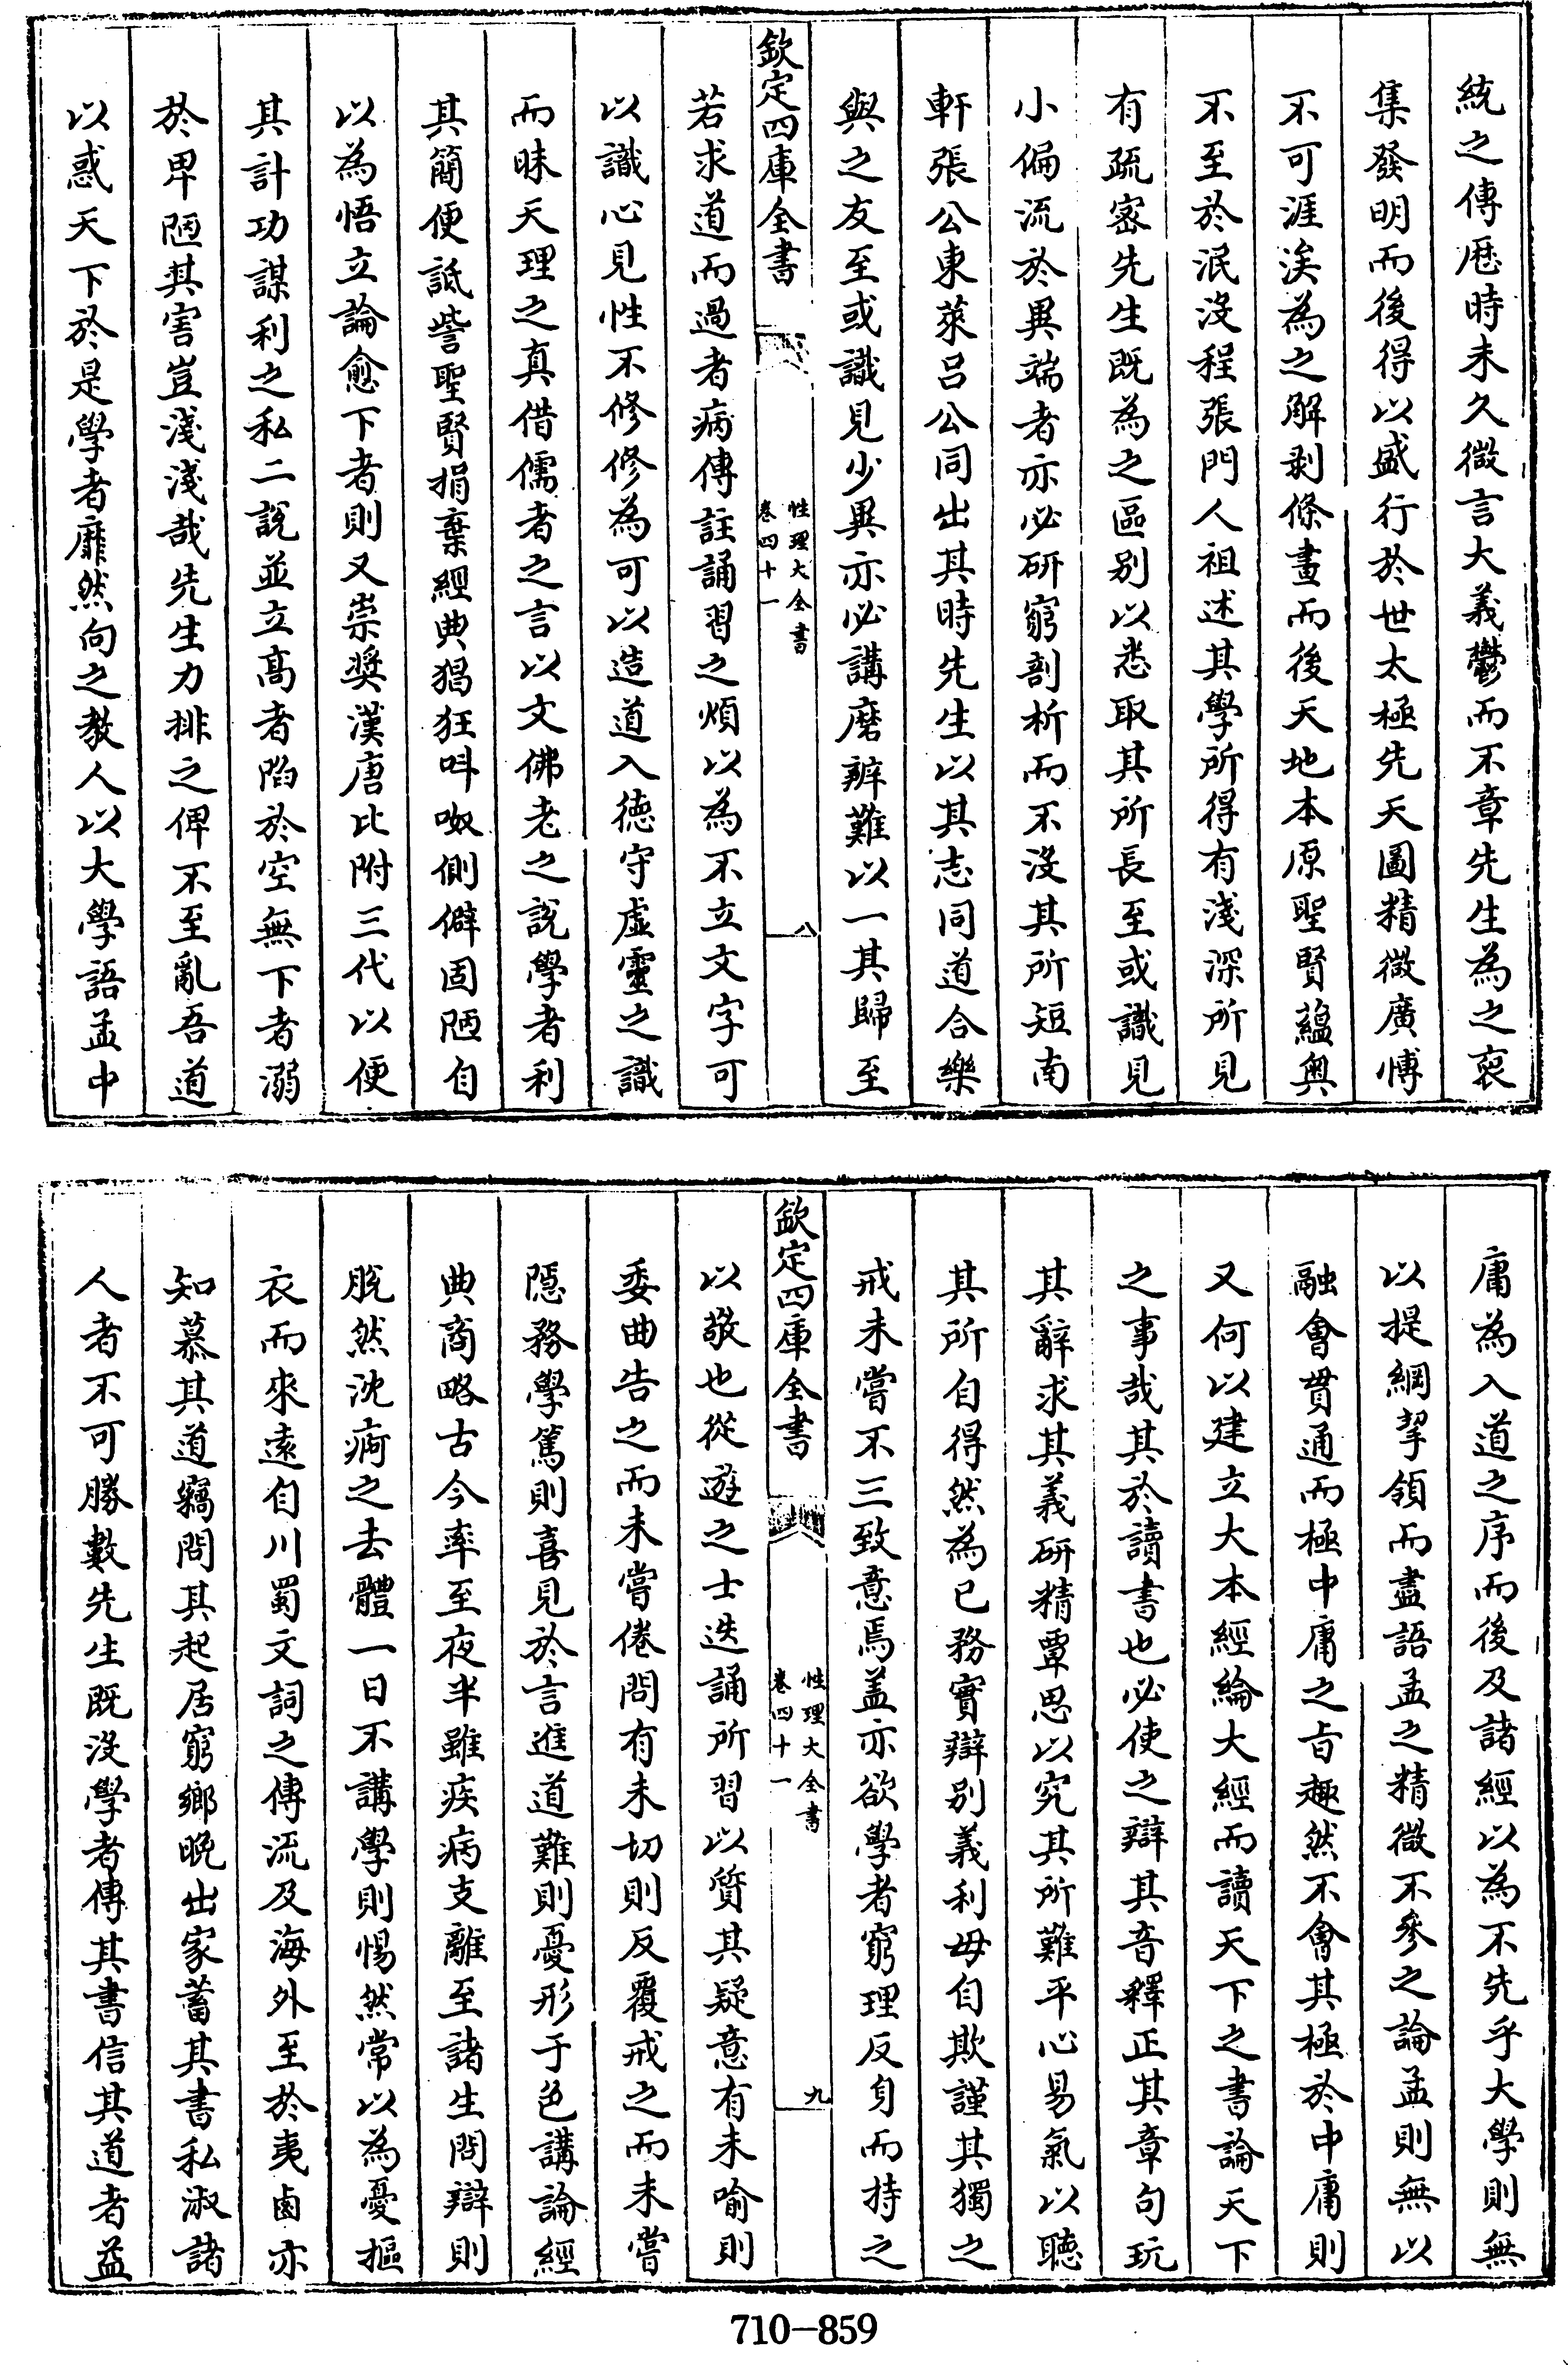 統之傳歴時未久微言大義鬱而不章先生為之裒
集發明而後得以盛行於世太極先天圖精微廣博
不可涯涘為之解剥條畫而後天地本原聖賢藴奥
不至於泯沒程張門人祖述其學所得有淺深所見
有疏宻先生既為之區别以悉取其所長至或識見
小偏流於異端者亦必研窮剖析而不沒其所短南
軒張公東萊吕公同出其時先生以其志同道合樂
與之友至或識見少異亦必講磨辨難以一其歸至
欽定四庫全書
性理大全書
卷四十一
八
若求道而過者病傳註誦習之煩以為不立文字可
以識心見性不修修為可以造道入德守虚靈之識
而昧天理之真借儒者之言以文佛老之說學者利
其簡便詆訾聖賢捐棄經典猖狂呌呶側僻固陋自
以為悟立論愈下者則又崇奬漢唐比附三代以便
其計功謀利之私二說並立髙者陷於空無下者溺
於卑陋其害豈淺淺哉先生力排之俾不至亂吾道
以惑天下於是學者靡然向之教人以大學語孟中
庸為入道之序而後及諸經以為不先乎大學則無
以提綱挈領而盡語孟之精微不參之論孟則無以
融會貫通而極中庸之旨趣然不會其極於中庸則
又何以建立大本經綸大經而讀天下之書論天下
之事哉其於讀書也必使之辯其音釋正其章句玩
其辭求其義研精覃思以究其所難平心易氣以聽
其所自得然為已務實辯别義利毋自欺謹其獨之
戒未嘗不三致意焉盖亦欲學者窮理反身而持之
欽定四庫全書
性理大全書
卷四十一
九
以敬也從遊之士迭誦所習以質其疑意有未喻則
委曲告之而未嘗倦問有未切則反覆戒之而未嘗
隱務學篤則喜見於言進道難則憂形于色講論經
典商略古今率至夜半雖疾病支離至諸生問辯則
脱然沈疴之去體一日不講學則惕然常以為憂摳
衣而來逺自川蜀文詞之傳流及海外至於夷鹵亦
知慕其道竊問其起居窮鄉晩出家蓄其書私淑諸
人者不可勝數先生既沒學者傳其書信其道者益
710-859